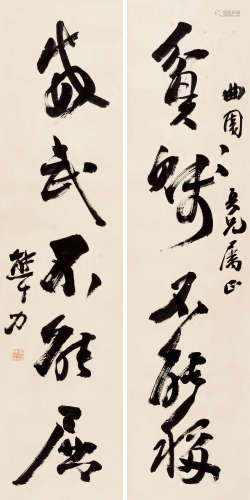 曲園吾兄屬正
貧賤不能移
威武不能屈
熊十力